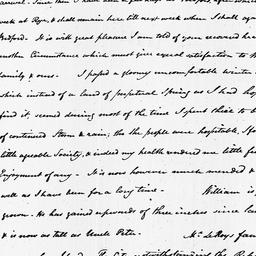 arrival. Since then I have been a few days at
week at Rye, & shall remain here till next week when I shall again
Bedford. It is with great pleasure I am told of your recovered hea
another Circumstance which must give equal satisfaction to th
family & ours. I passed a gloomy uncomfortable winter
which instead of a land of perpetual Spring as I had hop
find it, seemed during most of the time I spent there to b
of continued Storm & rain; tho the people were hospitable, I fo
little agreable Society, & indeed my health rendered me little f
Enjoyment of any. It is now however much amended & 
well as I have been for a long time. William is,
grown. He has gained upwards of three inches since la
& is now as tall as Uncle Peter. Mr. LeRoys fam
notwithstanding the